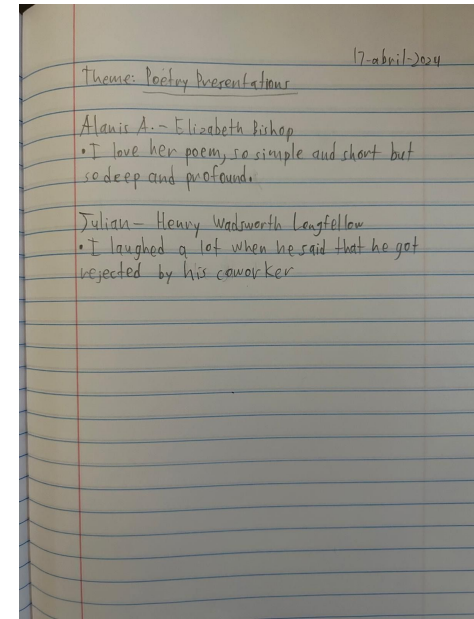 17-abril-2024
Theme: Poetry Presentations
Alanis A. - Elizabeth Bishop
• I love her poem, so simple and short but
so deep and profound.
Julian - Henry Wadsworth Longfellow
• I laughed a lot when he said that he got
rejected by his coworker